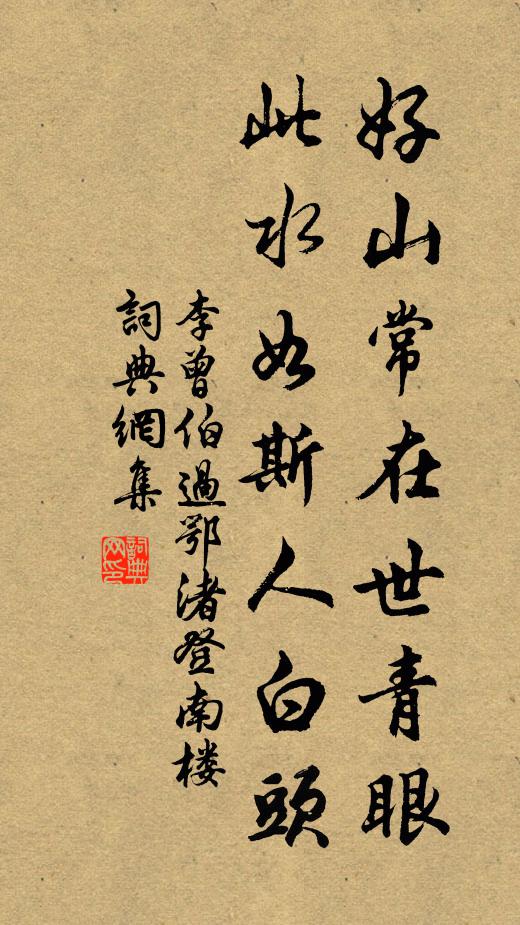 好山常在世青眼
此水如斯人白頭
李曾伯過鄂渚登南楼
詞典網集
詞典网印